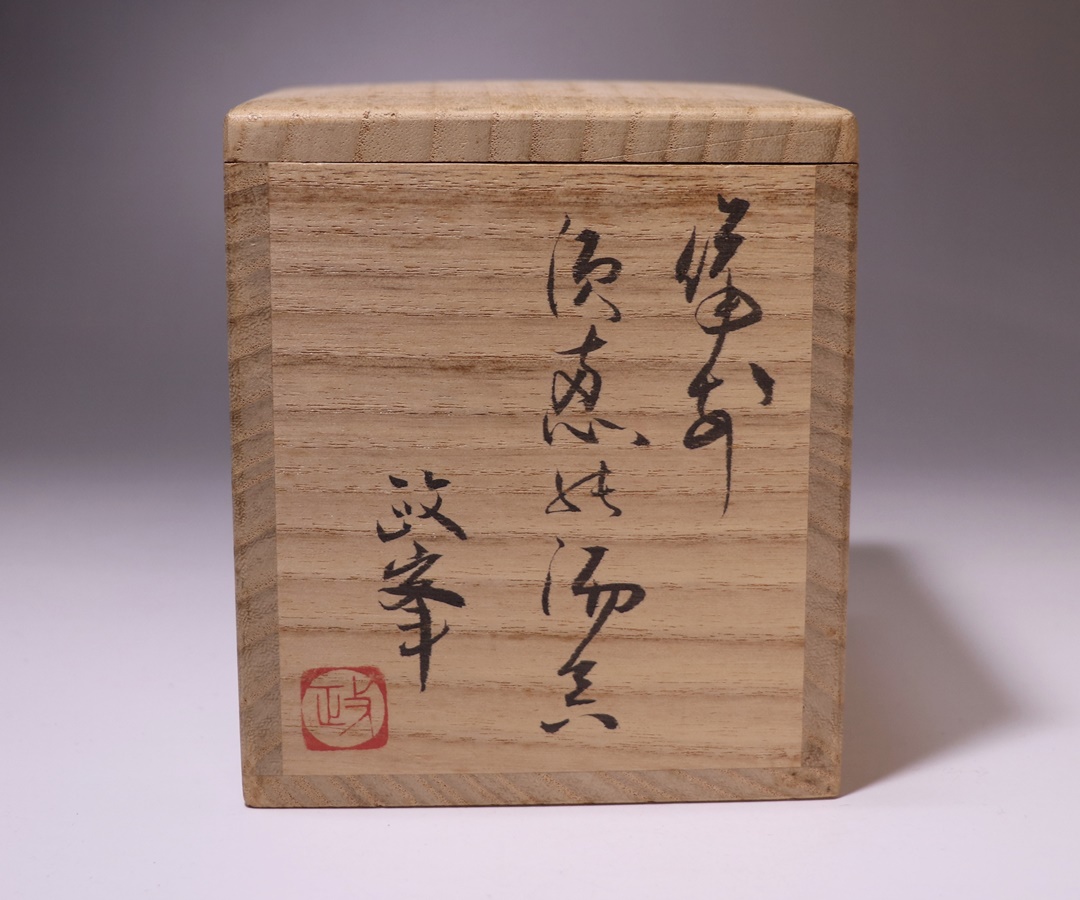 備前
須恵 湯呑
政峯
政